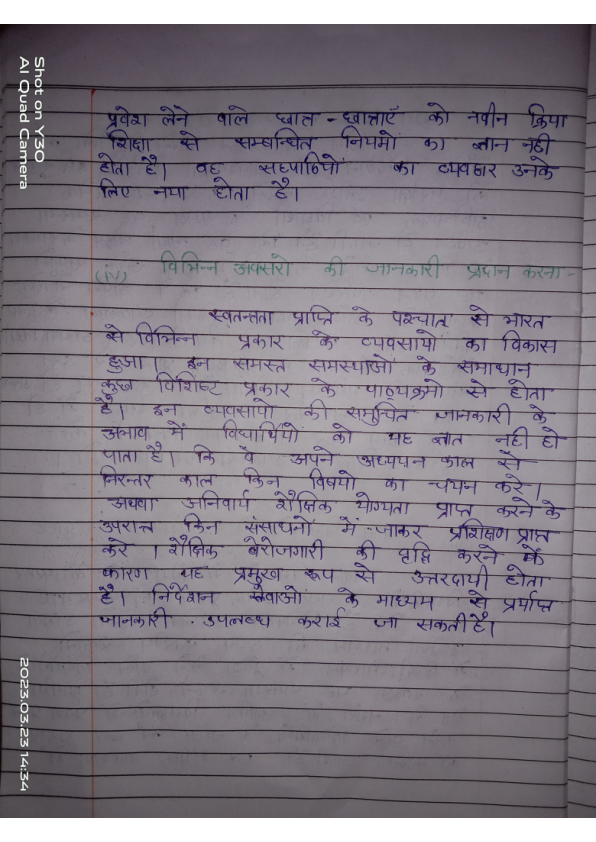 प्रवेश लेने वाले छात्र - छात्राएँ को नवीन क्रिया
शिक्षा से सम्बन्धित नियमों का ज्ञान नही
होता है। वह सहपाठियों का व्यवहार उनके
लिए नया होता है।
(iv) विभिन्न अवसरो की जानकारी प्रदान करना -
स्वतन्त्रता प्राप्ति के पश्चात् से भारत
से विभिन्न प्रकार के व्यवसायो का विकास
हुआ। इन समस्त समस्याओं के समाधान
कुछ विशिष्ट प्रकार के पाठ्यक्रमो से होता
है। इन व्यवसायो की समुचित जानकारी के
अभाव में विधार्थियों को यह ज्ञात नही हो
पाता है। कि वे अपने अध्ययन काल से
निरन्तर काल किन विषयो का चयन करे।
अथवा अनिवार्य शैक्षिक योग्यता प्राप्त करने के
उपरान्त किन संसाधनो में जाकर प्रशिक्षण प्राप्त
करे । शैक्षिक बेरोजगारी की करने के
कारण यह प्रमुख रूप से उत्तरदायी होता
है। निर्देशन सेवाओं के माध्यम से प्रर्याप्त
जानकारी उपलब्ध कराई जा सकती है।
Shot on Y30
AI Quad Camera
2023.03.23 14:34